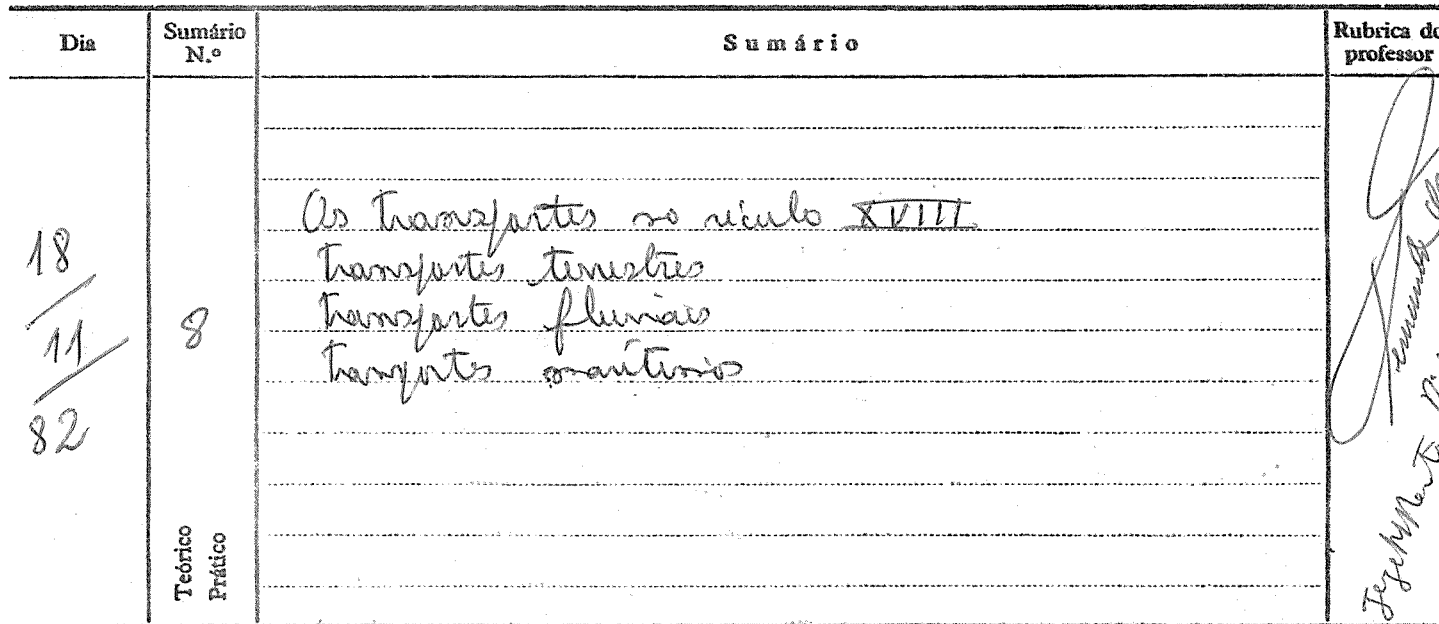 Dia
Sumário
N.º
Sumário
Rubrica do
professor
18
11
82
8
Os transportes no século XVIII
transportes terrestres
transportes fluviais
transportes marítimos
Teórico
Prático